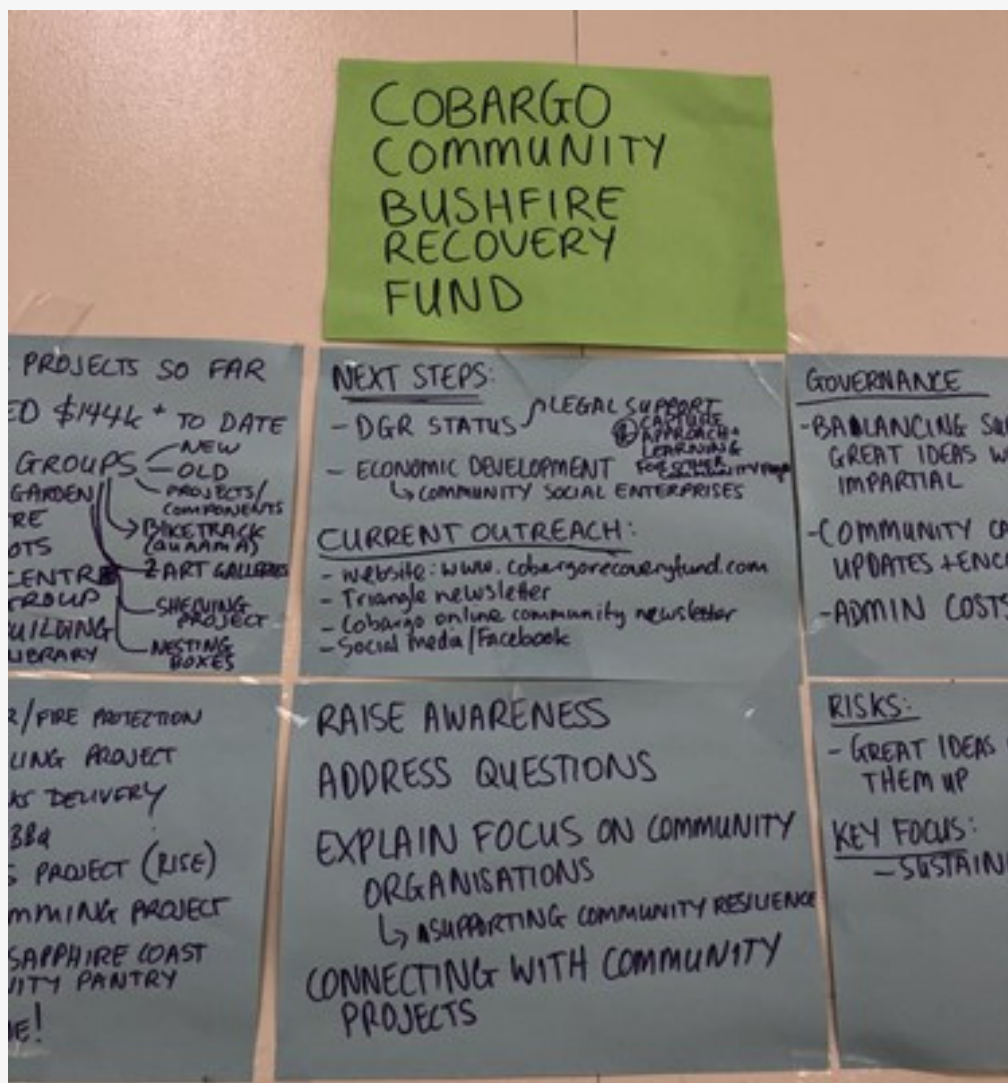 COBARGO
COMMUNITY
BUSHFIRE
RECOVERY
FUND
PROJECTS SO FAR
ED $144k+ TO DATE
GROUPS
NEW
OLD
PROJECTS/
COMPONENTS
GARDEN
RE
BIKE TRACK
(QUAAMA)
OTS
2 ART GALLERIES
CENTRE
GROUP
SHEDDING
PROJECT
UILDING
LIBRARY
NESTING
BOXES
NEXT STEPS:
- DGR STATUS
LEGAL SUPPORT
CAPTURE
APPROACH+
LEARNING
FOR OTHER
- ECONOMIC DEVELOPMENT
↳ COMMUNITY SOCIAL ENTERPRISES
CURRENT OUTREACH:
- Website: www.cobargorecoveryfund.com
- Triangle newsletter
- Cobargo online community newsletter
- Social Media/Facebook
GOVERNANCE
- BALANCING SU
GREAT IDEAS W
IMPARTIAL
- COMMUNITY CA
UPDATES + ENC
- ADMIN COSTS
R/FIRE PROTECTION
LING PROJECT
KS DELIVERY
BBQ
S PROJECT (RISE)
MMING PROJECT
SAPPHIRE COAST
ITY PANTRY
E!
RAISE AWARENESS
ADDRESS QUESTIONS
EXPLAIN FOCUS ON COMMUNITY
ORGANISATIONS
↳ SUPPORTING COMMUNITY RESILIENCE
CONNECTING WITH COMMUNITY
PROJECTS
RISKS:
- GREAT IDEAS
THEM UP
KEY FOCUS:
- SUSTAIN